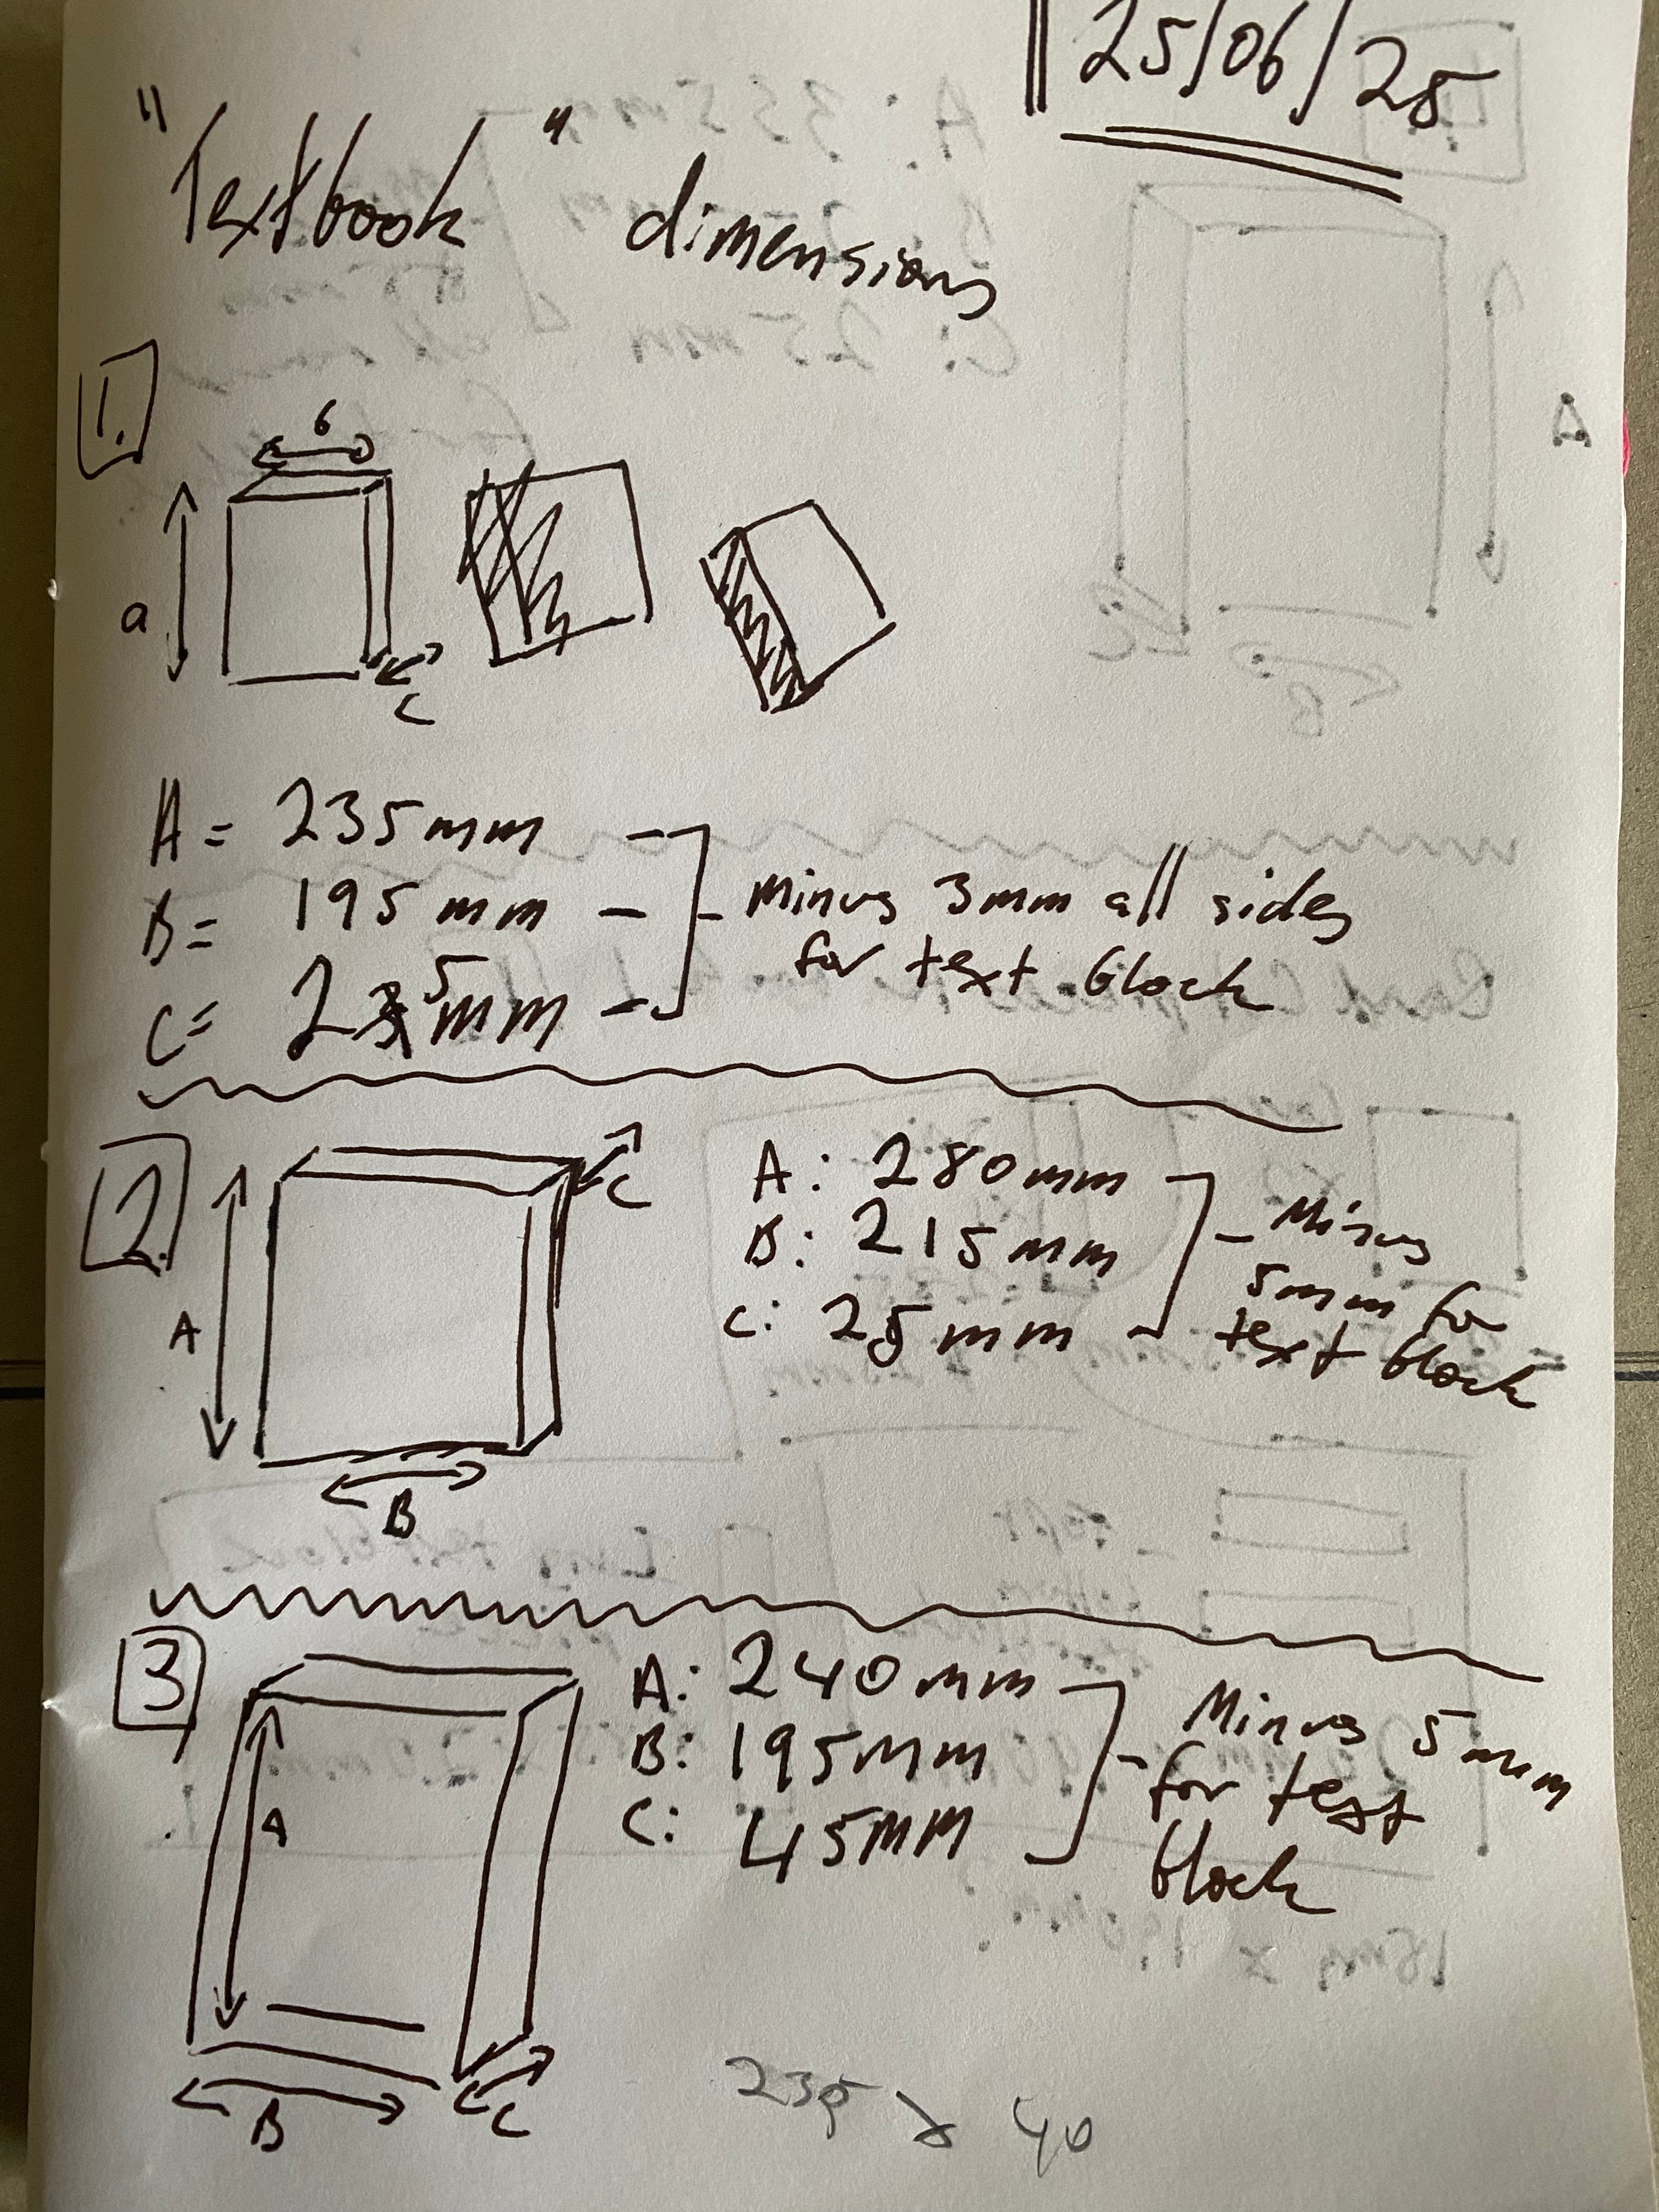 25/06/25
"Textbook" dimensions
1.
b
a
C
A = 235mm
B = 195mm
C = 25mm
Minus 3mm all sides
for text block
2.
C
A
B
A: 280mm
B: 215mm
C: 25mm
Minus
5mm for
text block
3
A
B
C
A: 240mm
B: 195mm
C: 45mm
Minus 5mm
for text
block
235 x 40